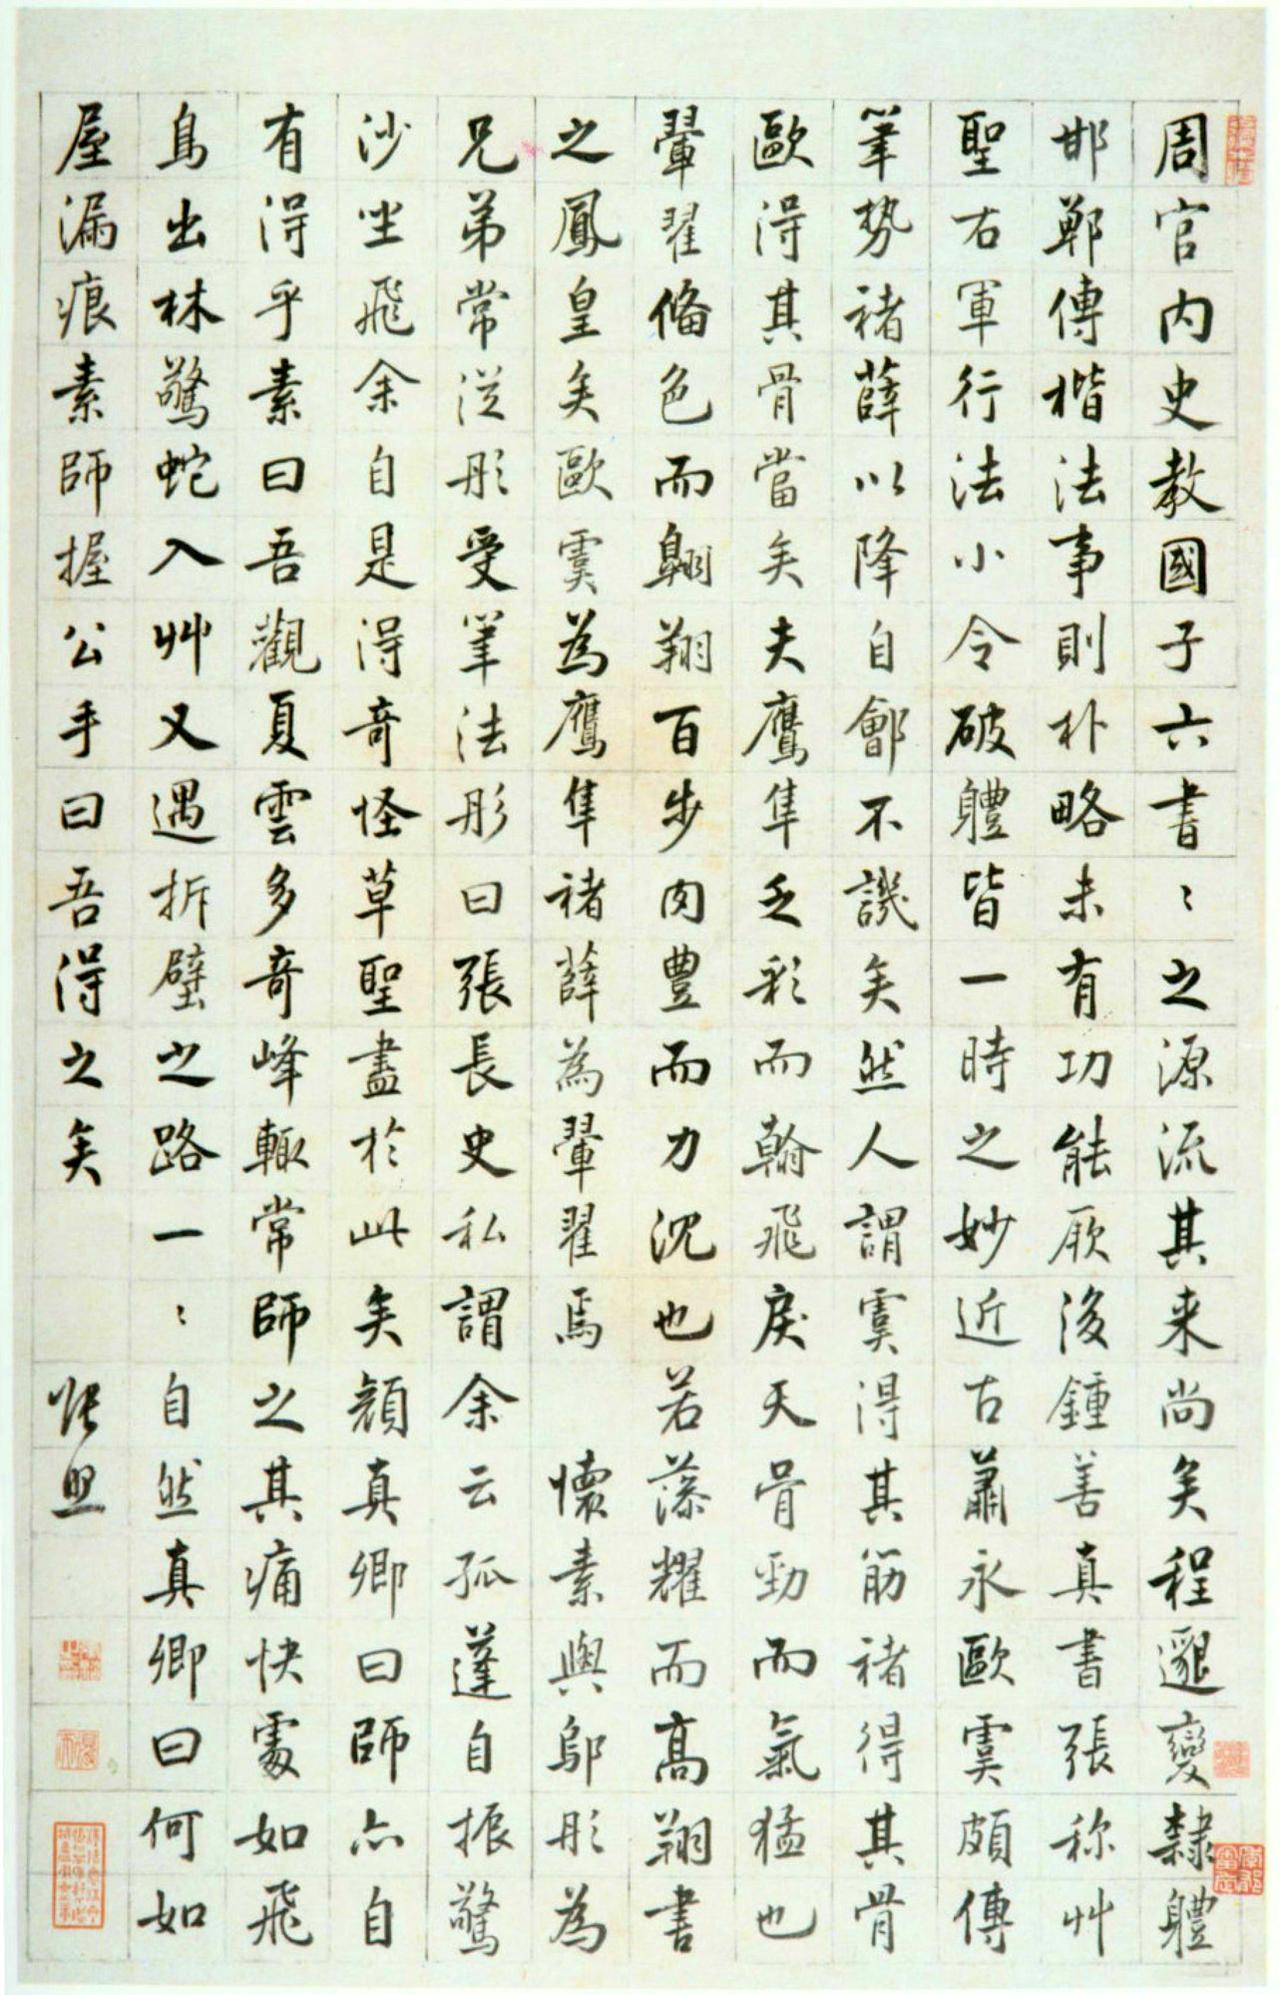 周官内史教國子六書〻之源流其来尚矣程邈變隸軆
邯鄲傳楷法事則朴略未有功能厥後鍾善真書張称艸
聖右軍行法小令破軆皆一時之妙近古蕭永歐虞頗傳
筆勢褚薛以降自鄶不譏矣然人謂虞得其筋褚得其骨
歐得其骨當矣夫鷹隼乏彩而翰飛戾天骨勁而氣猛也
翬翟俻色而翱翔百步肉豊而力沉也若藻耀而高翔書
之鳳皇矣歐虞為鷹隼褚薛為翬翟焉 懷素與鄔彤為
兄弟常從彤受筆法彤曰張長史私謂余云孤蓬自振驚
沙坐飛余自是得奇怪草聖盡於此矣顔真卿曰師亦自
有得乎素曰吾觀夏雲多奇峰輙常師之其痛快處如飛
鳥出林驚蛇入艸又遇拆壁之路一〻自然真卿曰何如
屋漏痕素師握公手曰吾得之矣 張照